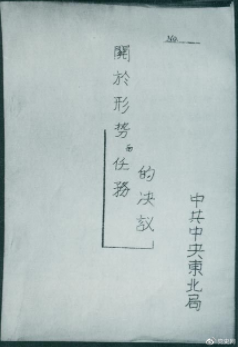 No
關於形势和任務
的决議
中共中央東北局